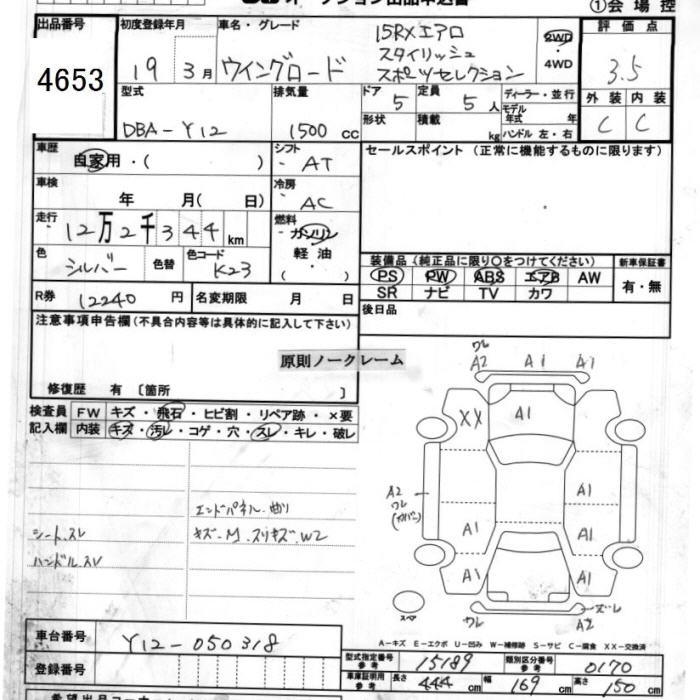 オークション出品申込書
①会場控
出品番号 初度登録年月 車名・グレード 評価点
4653 19 3月 ウイングロード 15RXエアロ スタイリッシュ スポーツセレクション 2WD ・4WD 3.5
型式 排気量 ドア 5 定員 5人 ディーラー・並行 外装 内装
DBA-Y12 1500cc 形状 積載 kg モデル年式 年 ハンドル 左・右 C C
車歴 自家用・( ) シフト AT セールスポイント (正常に機能するものに限ります)
車検 年 月( 日) 冷房 AC
走行 12万2千344km 燃料 ガソリン 軽油 ( )
色 シルバー 色替 色コード K23 装備品 (純正品に限り○をつけてください) 新車保証書
PS PW ABS エアB AW 有・無
SR ナビ TV カワ
R券 12240円 名変期限 月 日 後日品
注意事項申告欄 (不具合内容等は具体的に記入して下さい)
原則ノークレーム
修復歴 有 [箇所 ]
検査員 FW キズ・飛石・ヒビ割・リペア跡・×要
記入欄 内装 キズ・汚レ・コゲ・穴・スレ・キレ・破レ
ワレ
A2 A1 A1
XX A1
A2 A1
ワレ
(カバー)
A1 A1
A1 A1
エンドパネル.曲リ
シート.スレ キズ-M.スリキズ.W2
ハンドル.スレ
スペア ワレ ズレ
A2
A-キズ E-エクボ U-凹み W-補修跡 S-サビ C-腐食 XX-交換済
車台番号 Y12-050318
型式指定番号 参考 15189 類別区分番号 参考 0170
登録番号 車庫証明用 参考 長さ 444cm 幅 169cm 高さ 150cm
希望出品コーナー